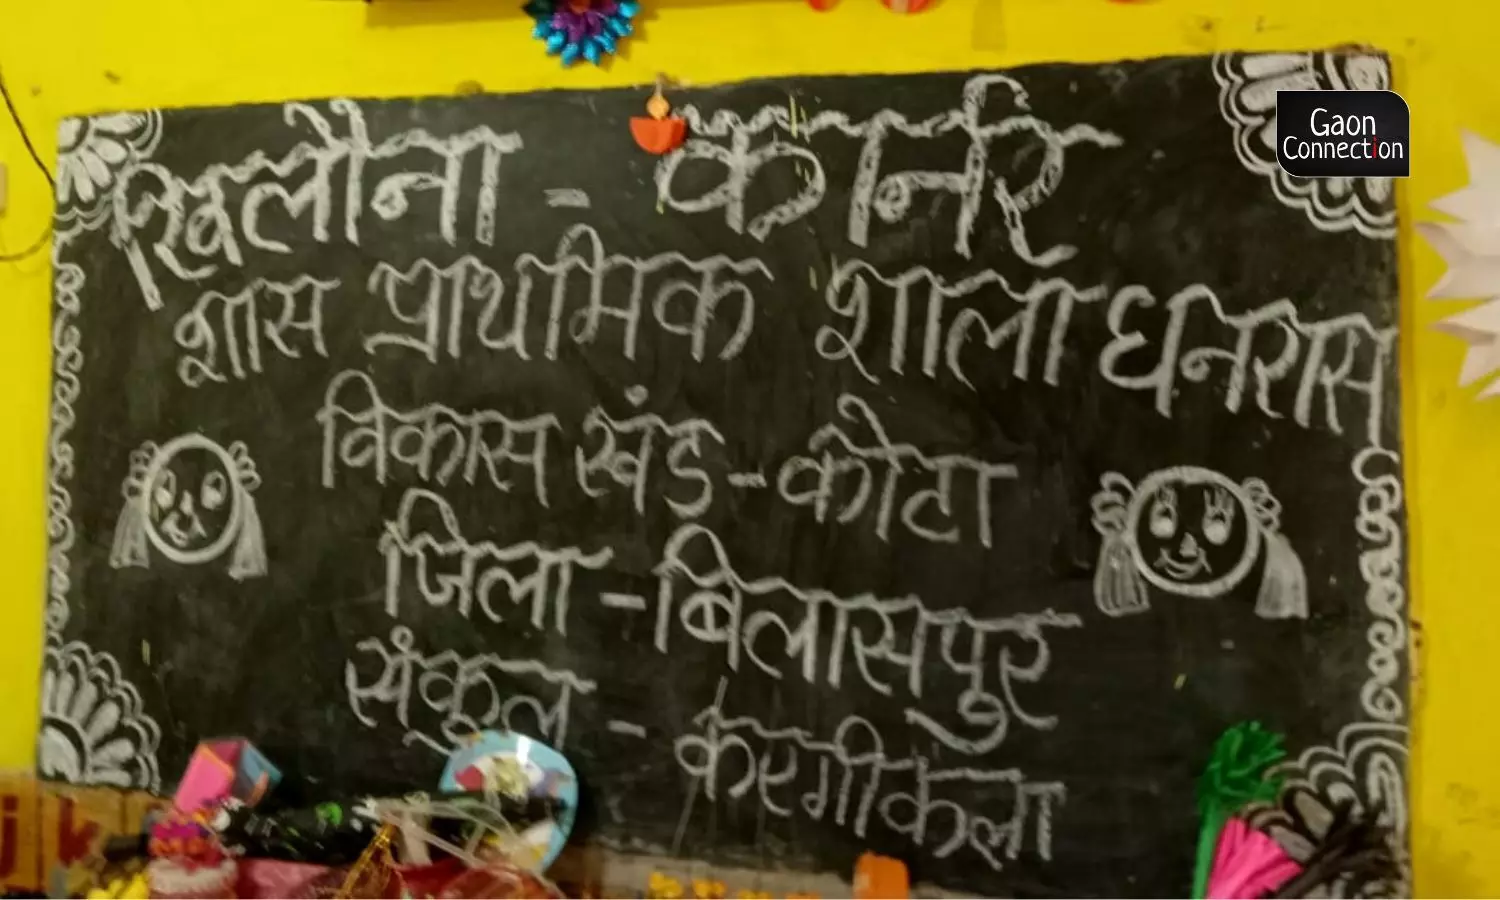 खिलौना - कार्नर
Gaon
Connection
शास प्राथमिक शाला धनरास
विकास खंड - कोटा
जिला - बिलासपुर
संकुल - करगीकला
j k